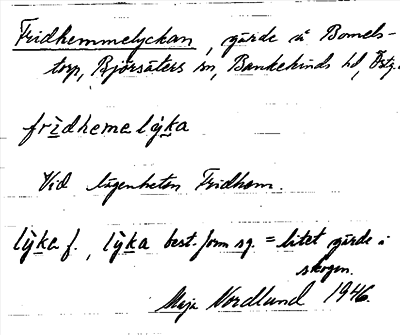 Fridhemmelyckan, gärde å Bomels-
torp, Björsäters sn, Bankekinds hd, Östg.
fridhemelyka
Vid lägenheten Fridhem.
lyka f., lyka best. form sg. = litet gärde i
skogen.
Maja Nordlund 1946.